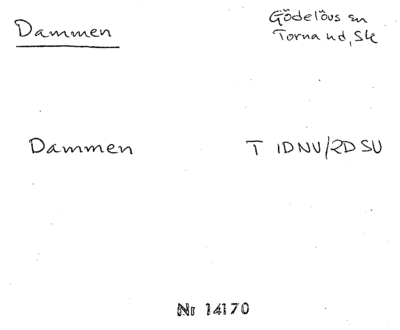 Dammen
Gödelövs sn
Torna hd, Sk
Dammen
T 1DNV/2DSV
Nr 14170